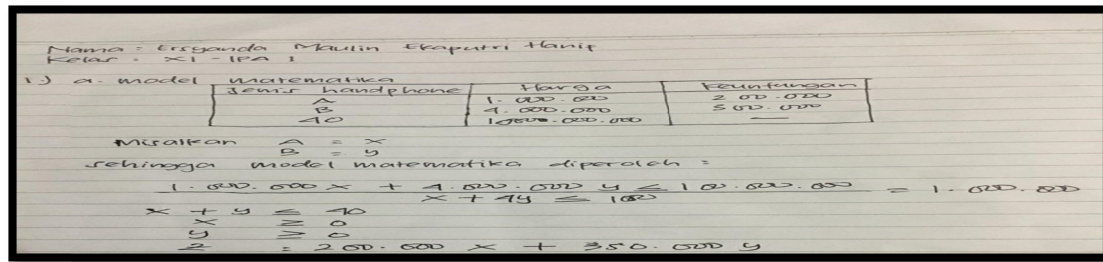 Nama = Ersyanda Maulin Ekaputri Hanif
Kelas = XI - IPA 1
1.) a. model matematika
Jenis handphone Harga Keuntungan
A 1.000.000 200.000
B 4.000.000 300.000
40 100.000.000 —
Misalkan A = x
B = y
sehingga model matematika diperoleh =
1.000.000 x + 4.000.000 y ≤ 100.000.000 = 1.000.000
x + 4y ≤ 100
x + y ≤ 40
x ≥ 0
y ≥ 0
z = 200.000 x + 350.000 y